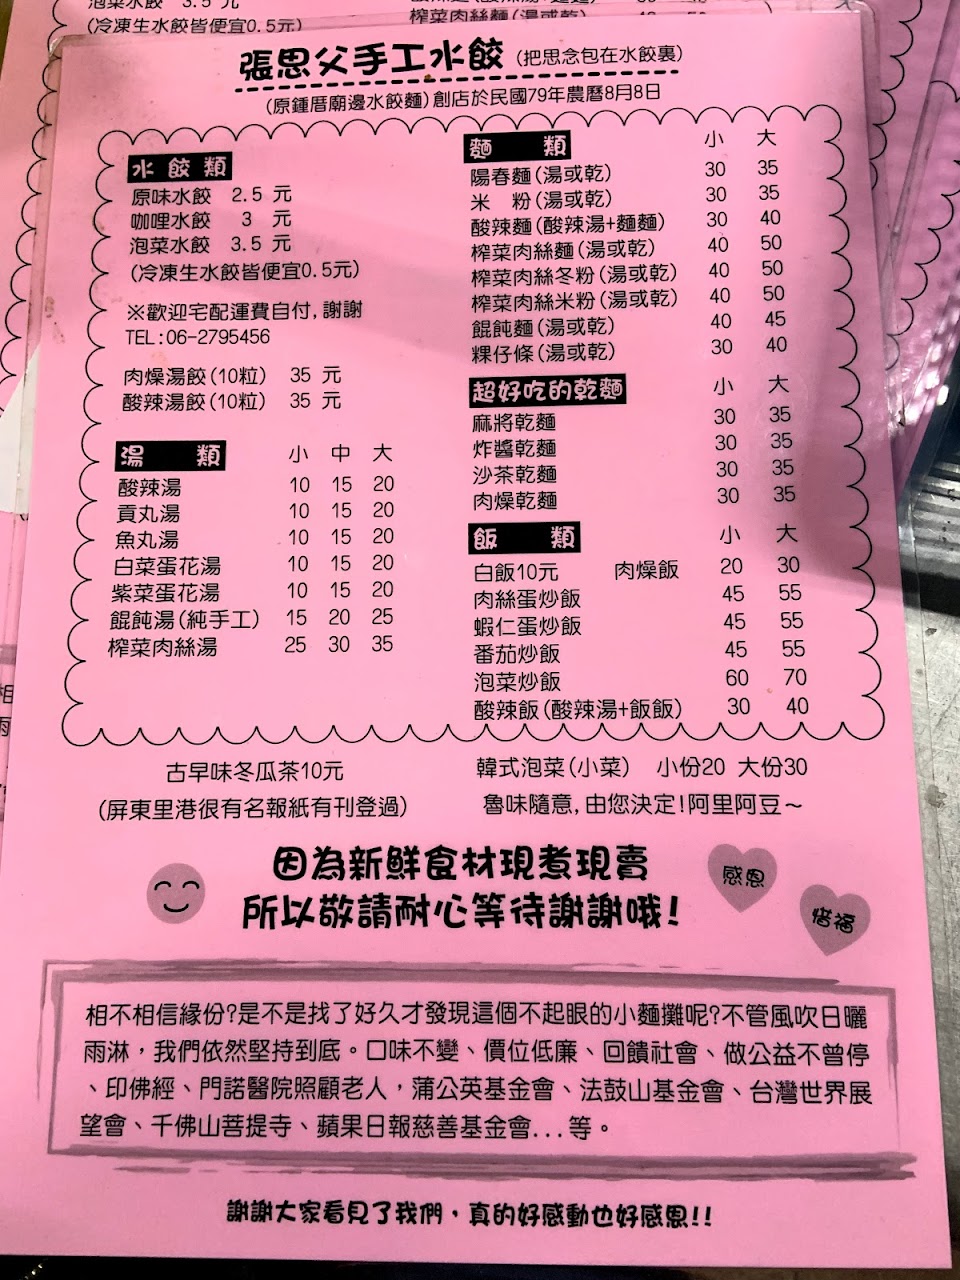 泡菜水餃 3.5 元
(冷凍生水餃皆便宜0.5元)
榨菜肉絲麵(湯或乾)
張思父手工水餃 (把思念包在水餃裏)
(原鍾厝廟邊水餃麵)創店於民國79年農曆8月8日
水餃類
原味水餃 2.5 元
咖哩水餃 3 元
泡菜水餃 3.5 元
(冷凍生水餃皆便宜0.5元)
※歡迎宅配運費自付,謝謝
TEL:06-2795456
肉燥湯餃(10粒) 35 元
酸辣湯餃(10粒) 35 元
湯類 小 中 大
酸辣湯 10 15 20
貢丸湯 10 15 20
魚丸湯 10 15 20
白菜蛋花湯 10 15 20
紫菜蛋花湯 10 15 20
餛飩湯(純手工) 15 20 25
榨菜肉絲湯 25 30 35
麵類 小 大
陽春麵(湯或乾) 30 35
米 粉(湯或乾) 30 35
酸辣麵(酸辣湯+麵麵) 30 40
榨菜肉絲麵(湯或乾) 40 50
榨菜肉絲冬粉(湯或乾) 40 50
榨菜肉絲米粉(湯或乾) 40 50
餛飩麵(湯或乾) 40 45
粿仔條(湯或乾) 30 40
超好吃的乾麵 小 大
麻將乾麵 30 35
炸醬乾麵 30 35
沙茶乾麵 30 35
肉燥乾麵 30 35
飯類 小 大
白飯10元 肉燥飯 20 30
肉絲蛋炒飯 45 55
蝦仁蛋炒飯 45 55
番茄炒飯 45 55
泡菜炒飯 60 70
酸辣飯(酸辣湯+飯飯) 30 40
古早味冬瓜茶10元
(屏東里港很有名報紙有刊登過)
韓式泡菜(小菜) 小份20 大份30
魯味隨意,由您決定!阿里阿豆~
因為新鮮食材現煮現賣
所以敬請耐心等待謝謝哦!
感恩
惜福
相不相信緣份?是不是找了好久才發現這個不起眼的小麵攤呢?不管風吹日曬
雨淋，我們依然堅持到底。口味不變、價位低廉、回饋社會、做公益不曾停
、印佛經、門諾醫院照顧老人，蒲公英基金會、法鼓山基金會、台灣世界展
望會、千佛山菩提寺、蘋果日報慈善基金會...等。
謝謝大家看見了我們，真的好感動也好感恩!!